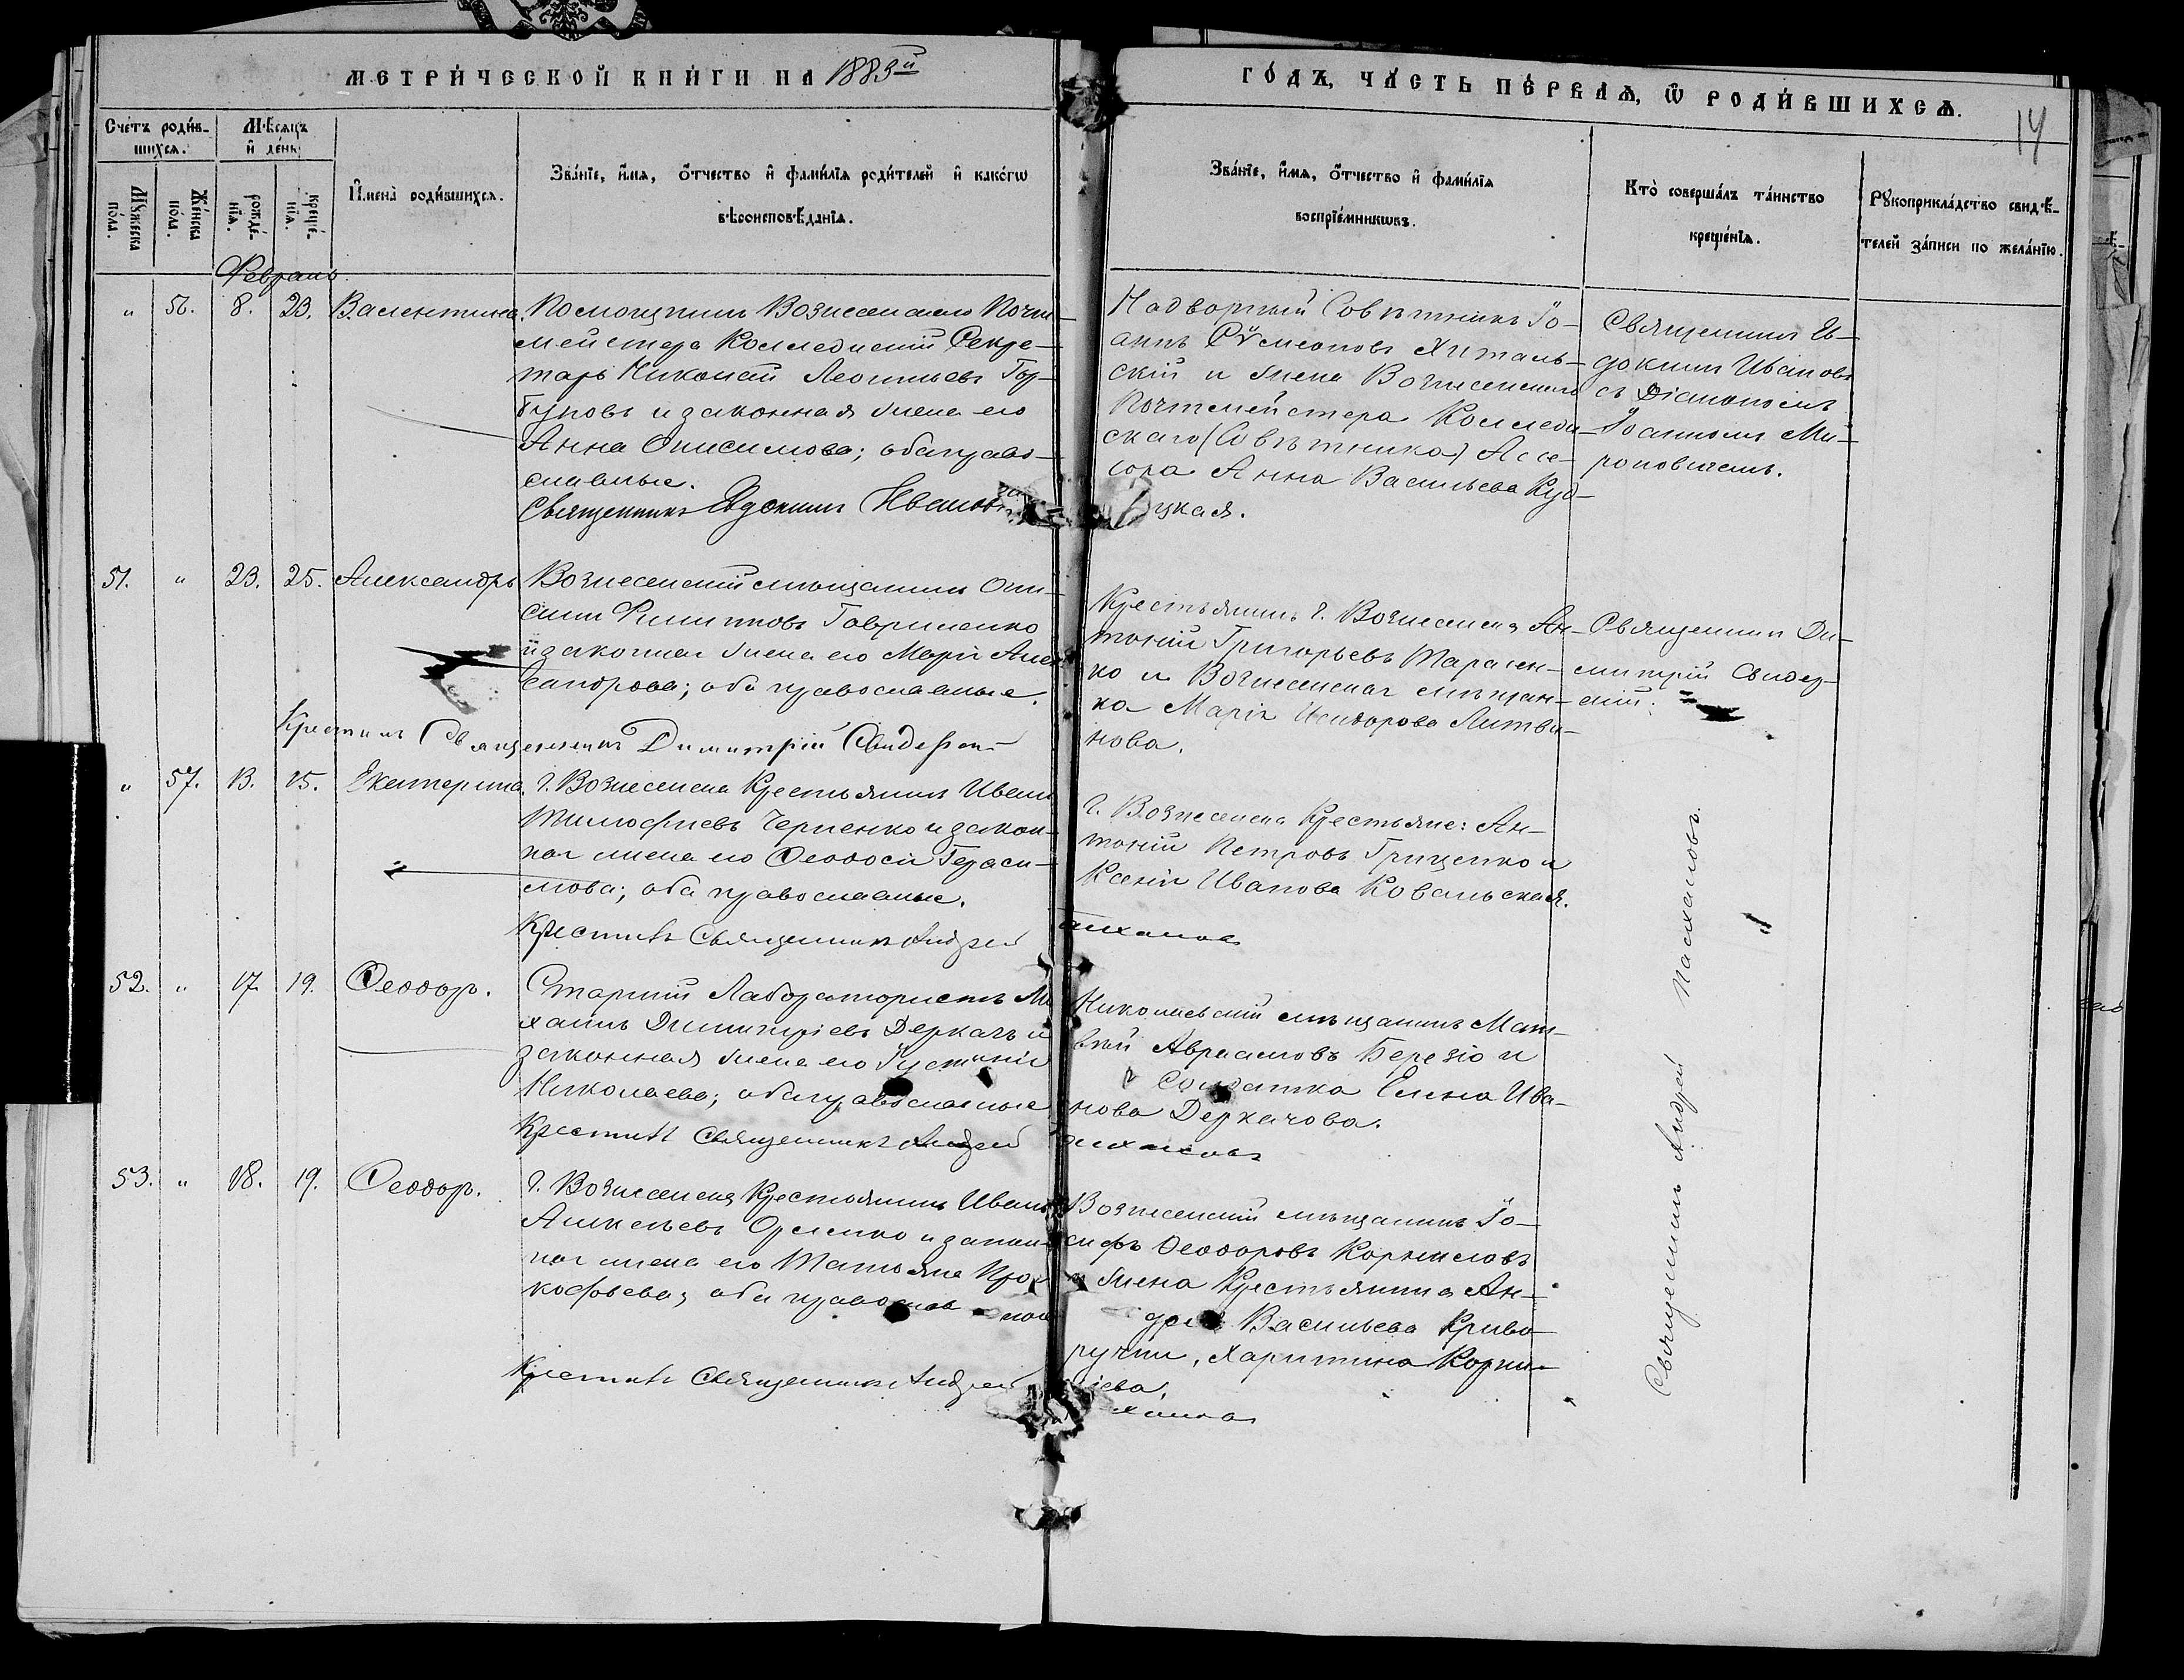 МЕТРИ́ЧЕСКОЙ КНИ́ГИ НА 1883й
ГО́ДЪ, ЧА́СТЬ ПЕ́РВАѦ, Ѡ҆ РОДИ́ВШИХСѦ.
14
Сче́тъ роди́в-
шихсѧ.
Мѣ́сѧцъ
и҆ де́нь
Мꙋ́жеска
по́ла.
Же́нска
по́ла.
рожде́-
нїѧ.
креще́-
нїѧ.
И҆мена̀ роди́вшихсѧ.
Зва́нїе, и҆́мѧ, ѻ҆́тчество и҆ фами́лїѧ роди́телей и҆ како́гѡ
вѣроисповѣ́данїѧ.
Зва́нїе, и҆́мѧ, ѻ҆́тчество и҆ фами́лїѧ
воспрїе́мникѡвъ.
Кто̀ соверша́лъ та́инство
креще́нїѧ.
Рꙋкоприкла́дство свидѣ́-
телей за́писи по жела́нїю.
Февраль
" 56. 8. 23. Валентина.
Помощникъ Вознесенскаго Почт-
мейстера Коллежскій Секре-
тарь Николай Леонтьевъ Гор-
буновъ и законная жена его
Анна Онисимова; оба право-
славные.
Священникъ Евдокимъ Ивановъ
Надворный Совѣтникъ Іо-
аннъ Сѵмеоновъ Хиталь-
скій и жена Вознесенскаго
Почтмейстера Коллеж-
скаго (Совѣтника) Ассе-
сора Анна Васильева Куд-
цкая.
Священникъ Ев-
докимъ Ивановъ
съ Діакономъ
Іоанномъ Ми-
роновичемъ.
51. " 23. 25. Александръ
Вознесенскій мѣщанинъ Они-
симъ Филиповъ Гавриленко
и законная жена его Марія Алек-
сандрова; оба православные.
Крестилъ Священникъ Димитрій Свидерскі
Крестьянинъ г. Вознесенска Ан-
тоній Григорьевъ Тарасен-
ко и Вознесенская мѣщан-
ка Марія Исидорова Литви-
нова.
Священникъ Ди-
митрій Свидер-
скій.
" 57. 13. 15. Екатерина.
г. Вознесенска Крестьянинъ Иванъ
Тимофіевъ Черненко и закон-
ная жена его Ѳеодосія Гераси-
мова; оба православные.
Крестилъ Священникъ Андрей
г. Вознесенска Крестьяне: Ан-
тоній Петровъ Гриценко и
Ксенія Иванова Ковальская.
асхаловъ
52. " 17 19. Ѳеодоръ.
Старшій Лаборатористъ Ми
хаилъ Димитріевъ Деркачъ и
законная жена его Іустинія
Николаева; оба православные
Крестилъ Священникъ Андрей
Николаевскій мѣщанинъ Мат-
вѣй Авраамовъ Березю и
Солдатка Елена Ива-
нова Деркачова.
асхаловъ
53. " 18. 19. Ѳеодоръ.
г. Вознесенска Крестьянинъ Иванъ
Алексѣевъ Орленко и закон
ная жена его Татьяна Про
кофьева; оба православные
Крестилъ Священникъ Андрей
Вознесенскій мѣщанинъ Іо-
сифъ Ѳеодоровъ Корниловъ
и жена Крестьянина Ан-
дрея Васильева Криво
ручки, Харитина Корни-
лієва.
халовъ
Священникъ Андрей Пасхаловъ.